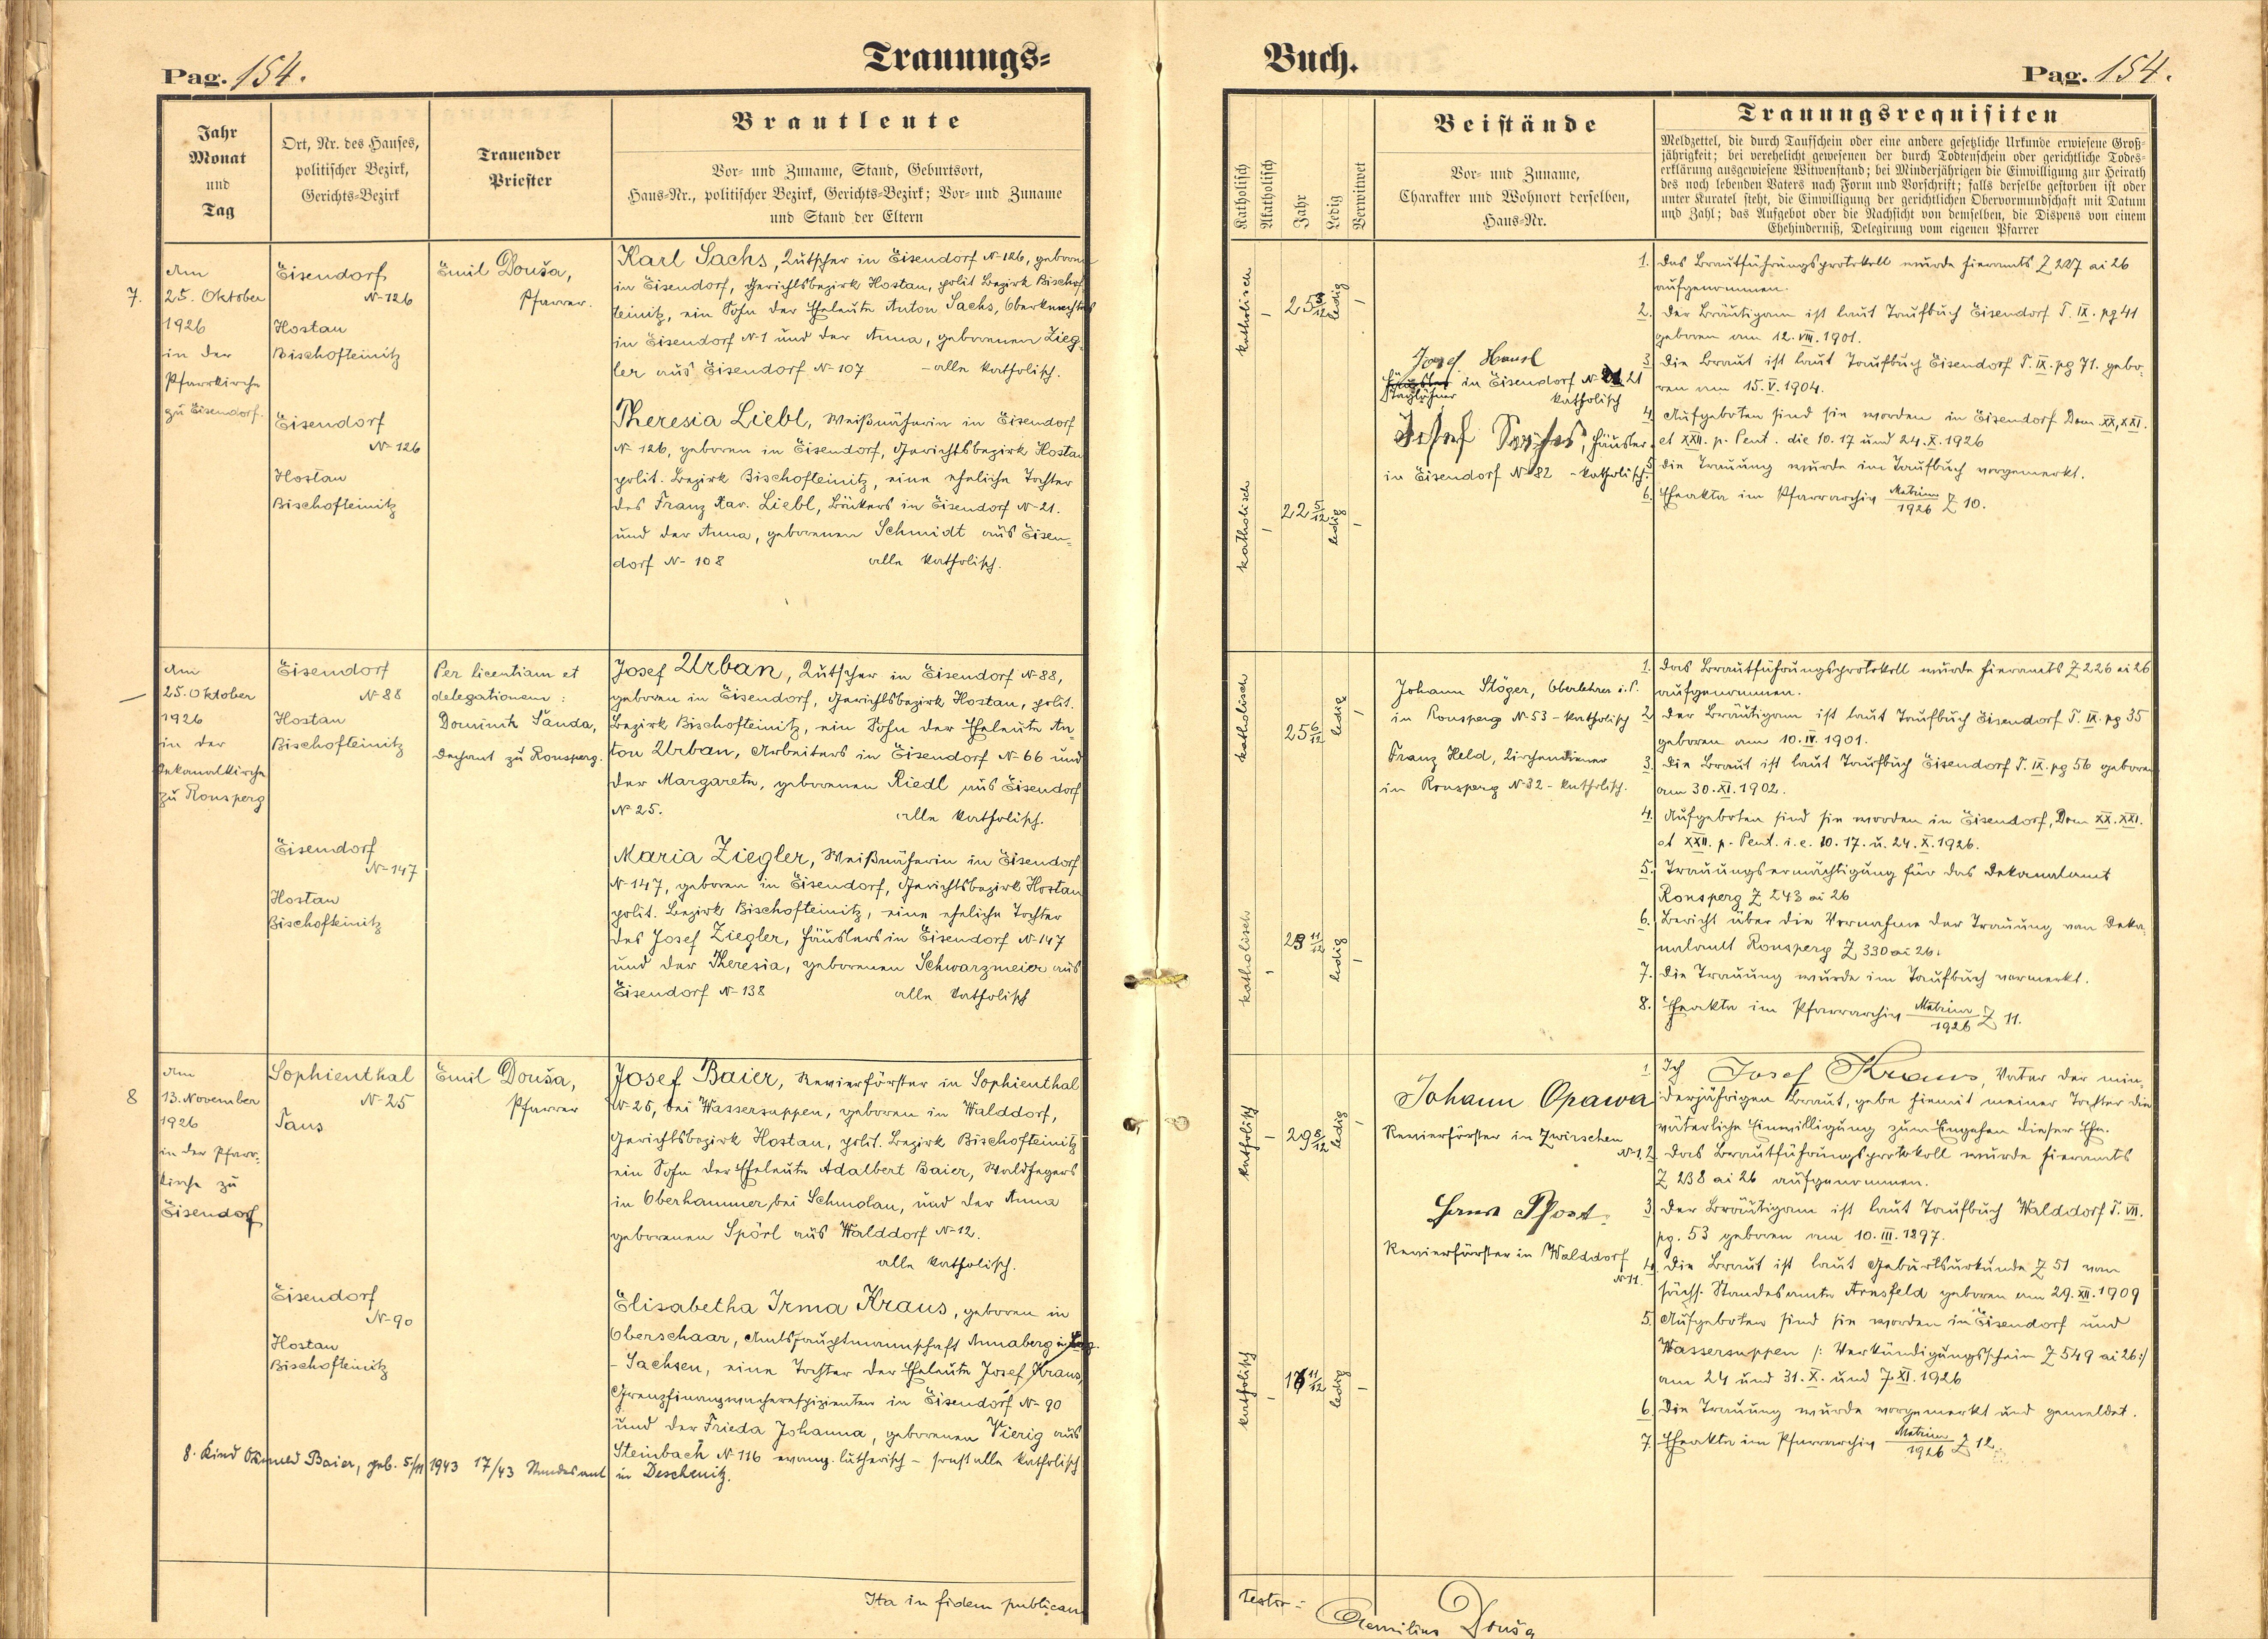 Pag. 154.
Trauungs=
Jahr
Monat
und
Tag
Ort, Nr. des Hauses,
politischer Bezirk,
Gerichts=Bezirk
Trauender
Priester
Brautleute
Vor= und Zuname, Stand, Geburtsort,
Haus=Nr., politischer Bezirk, Gerichts=Bezirk; Vor= und Zuname
und Stand der Eltern
7.
Am
25. Oktober
1926
in der
Pfarrkirche
zu Eisendorf.
Eisendorf
N- 126
Hostau
Bischofteinitz
Eisendorf
N- 126
Hostau
Bischofteinitz
Emil Douša,
Pfarrer.
Karl Sachs, Kutscher in Eisendorf N- 126, geboren
in Eisendorf, Gerichtsbezirk Hostau, polit Bezirk Bischof
teinitz, ein Sohn der Eheleute Anton Sachs, Oberknechtes
in Eisendorf N- 1 und der Anna, geborenen Zieg=
ler aus Eisendorf N- 107 - alle katholisch.
Theresia Liebl, Weißnäherin in Eisendorf
N- 126, geboren in Eisendorf, Gerichtsbezirk Hostau
polit. Bezirk Bischofteinitz, eine eheliche Tochter
des Franz Xav. Liebl, Bäckers in Eisendorf N- 21.
und der Anna, geborenen Schmidt aus Eisen=
dorf N- 108 alle katholisch.
Am
25. Oktober
1926
in der
Dekanalkirche
zu Ronsperg
Eisendorf
N- 88
Hostau
Bischofteinitz
Eisendorf
N- 147
Hostau
Bischofteinitz
Per licentiam et
delegationem:
Dominik Šanda,
Dechant zu Ronsperg.
Josef Urban, Kutscher in Eisendorf N- 88,
geboren in Eisendorf, Gerichtsbezirk Hostau, polit.
Bezirk Bischofteinitz, ein Sohn der Eheleute An=
ton Urban, Arbeiters in Eisendorf N- 66 und
der Margareta, geborenen Riedl aus Eisendorf
N- 25. alle katholisch.
Maria Ziegler, Weißnäherin in Eisendorf
N- 147, geboren in Eisendorf, Gerichtsbezirk Hostau
polit. Bezirk Bischofteinitz, eine eheliche Tochter
des Josef Ziegler, Häuslers in Eisendorf N- 147
und der Theresia, geborenen Schwarzmeier aus
Eisendorf N- 138 alle katholisch
8
Am
13. November
1926
in der Pfarr=
kirche zu
Eisendorf
Sophienthal
N- 25
Taus
Eisendorf
N- 90
Hostau
Bischofteinitz
Emil Douša,
Pfarrer
Josef Baier, Revierförster in Sophienthal
N- 25, bei Wassersuppen, geboren in Walddorf,
Gerichtsbezirk Hostau, polit. Bezirk Bischofteinitz
ein Sohn der Eheleute Adalbert Baier, Waldhegers
in Oberhammer, bei Schmolau, und der Anna
geborenen Spörl aus Walddorf N- 12.
alle katholisch.
Elisabetha Irma Kraus, geboren in
Oberschaar, Amtshauptmannschaft Annaberg in
- Sachsen, eine Tochter der Eheleute Josef Kraus,
in Eisendorf N- 90
und der Frieda Johanna, geborenen Vierig aus
Steinbach N- 116 evang. lutherisch - sonst alle katholisch
8. Kind Baier, geb. 5/11 1943 17/43 Standesamt in Deschenitz.
Ita in fidem publicam
Buch.
Pag. 154.
Katholisch
Akatholisch
Jahr
Ledig
Verwitwet
Beistände
Vor= und Zuname,
Charakter und Wohnort derselben,
Haus=Nr.
Trauungsrequisiten
Meldzettel, die durch Taufschein oder eine andere gesetzliche Urkunde erwiesene Groß=
jährigkeit; bei verehelicht gewesenen der durch Todtenschein oder gerichtliche Todes=
erklärung ausgewiesene Witwenstand; bei Minderjährigen die Einwilligung zur Heirath
des noch lebenden Vaters nach Form und Vorschrift; falls derselbe gestorben ist oder
unter Kuratel steht, die Einwilligung der gerichtlichen Obervormundschaft mit Datum
und Zahl; das Aufgebot oder die Nachsicht von demselben, die Dispens von einem
Ehehinderniß, Delegirung vom eigenen Pfarrer
katholisch - 25 3/12 ledig -
katholisch - 22 5/12 ledig -
Josef
in Eisendorf N- 21
Taglöhner katholisch
Josef Häusler
in Eisendorf N- 82 - katholisch.
1. Das Brautführungsprotokoll wurde hieramts Z 227 ai 26
aufgenommen.
2. Der Bräutigam ist laut Taufbuch Eisendorf T. IX. pg 41
geboren am 12. VII. 1901.
3. Die Braut ist laut Taufbuch Eisendorf T. IX. pg 71. gebo=
ren am 15. V. 1904.
4. Aufgeboten sind sie worden in Eisendorf Dom. XX, XXI.
et XXII. p. Pent. die 10. 17 und 24. X. 1926
5. Die Trauung wurde im Taufbuch vorgemerkt.
6. Eheakta im Pfarrarchiv Matrim/1926 Z 10.
katholisch 25 6/12 ledig -
katholisch - 23 11/12 ledig -
Johann Stöger, Oberlehrer i. P.
in Ronsperg N- 53 - katholisch
Franz Held, Kirchendiener
in Ronsperg N- 32 - katholisch.
1. Das Brautführungsprotokoll wurde hieramts Z 226 ai 26
aufgenommen.
2. Der Bräutigam ist laut Taufbuch Eisendorf T. IX. pg 35
geboren am 10. IV. 1901.
3. Die Braut ist laut Taufbuch Eisendorf T. IX. pg 56 geboren
am 30. XI. 1902.
4. Aufgeboten sind sie worden in Eisendorf, Dom XX. XXI.
et XXII. p. Pent. i. e. 10. 17. u. 24. X. 1926.
5. Trauungsermächtigung für das Dekanalamt
Ronsperg Z 243 ai 26
6. Bericht über die Vornahme der Trauung vom Deka=
nalamt Ronsperg Z 330 ai 26.
7. Die Trauung wurde im Taufbuch vermerkt.
8. Eheakta im Pfarrarchiv Matrim/1926 Z 11.
katholisch - 29 8/12 ledig -
katholisch - 16 11/12 ledig -
Johann Opawa
Revierförster in Zwirschen
N- 1
Hans
Revierförster in Walddorf
N- 11.
1. Ich Josef Kraus, Vater der min=
derjährigen Braut, gebe hiemit meiner Tochter die
väterliche Einwilligung zum Eingehen dieser Ehe.
2. Das Brautführungsprotokoll wurde hieramts
Z 238 ai 26 aufgenommen.
3. Der Bräutigam ist laut Taufbuch Walddorf T. VII.
pg. 53 geboren am 10. III. 1897.
4. Die Braut ist laut Geburtsurkunde Z 51 vom
sächs. Standesamte Arnsfeld geboren am 29. XII. 1909
5. Aufgeboten sind sie worden in Eisendorf und
Wassersuppen /: Verkündigungsschein Z 549 ai 26:/
am 24 und 31. X. und 7. XI. 1926
6. Die Trauung wurde vorgemerkt und gemeldet.
7. Eheakta im Pfarrarchiv Matrim/1926 Z 12.
testor =
Aemilius Douša